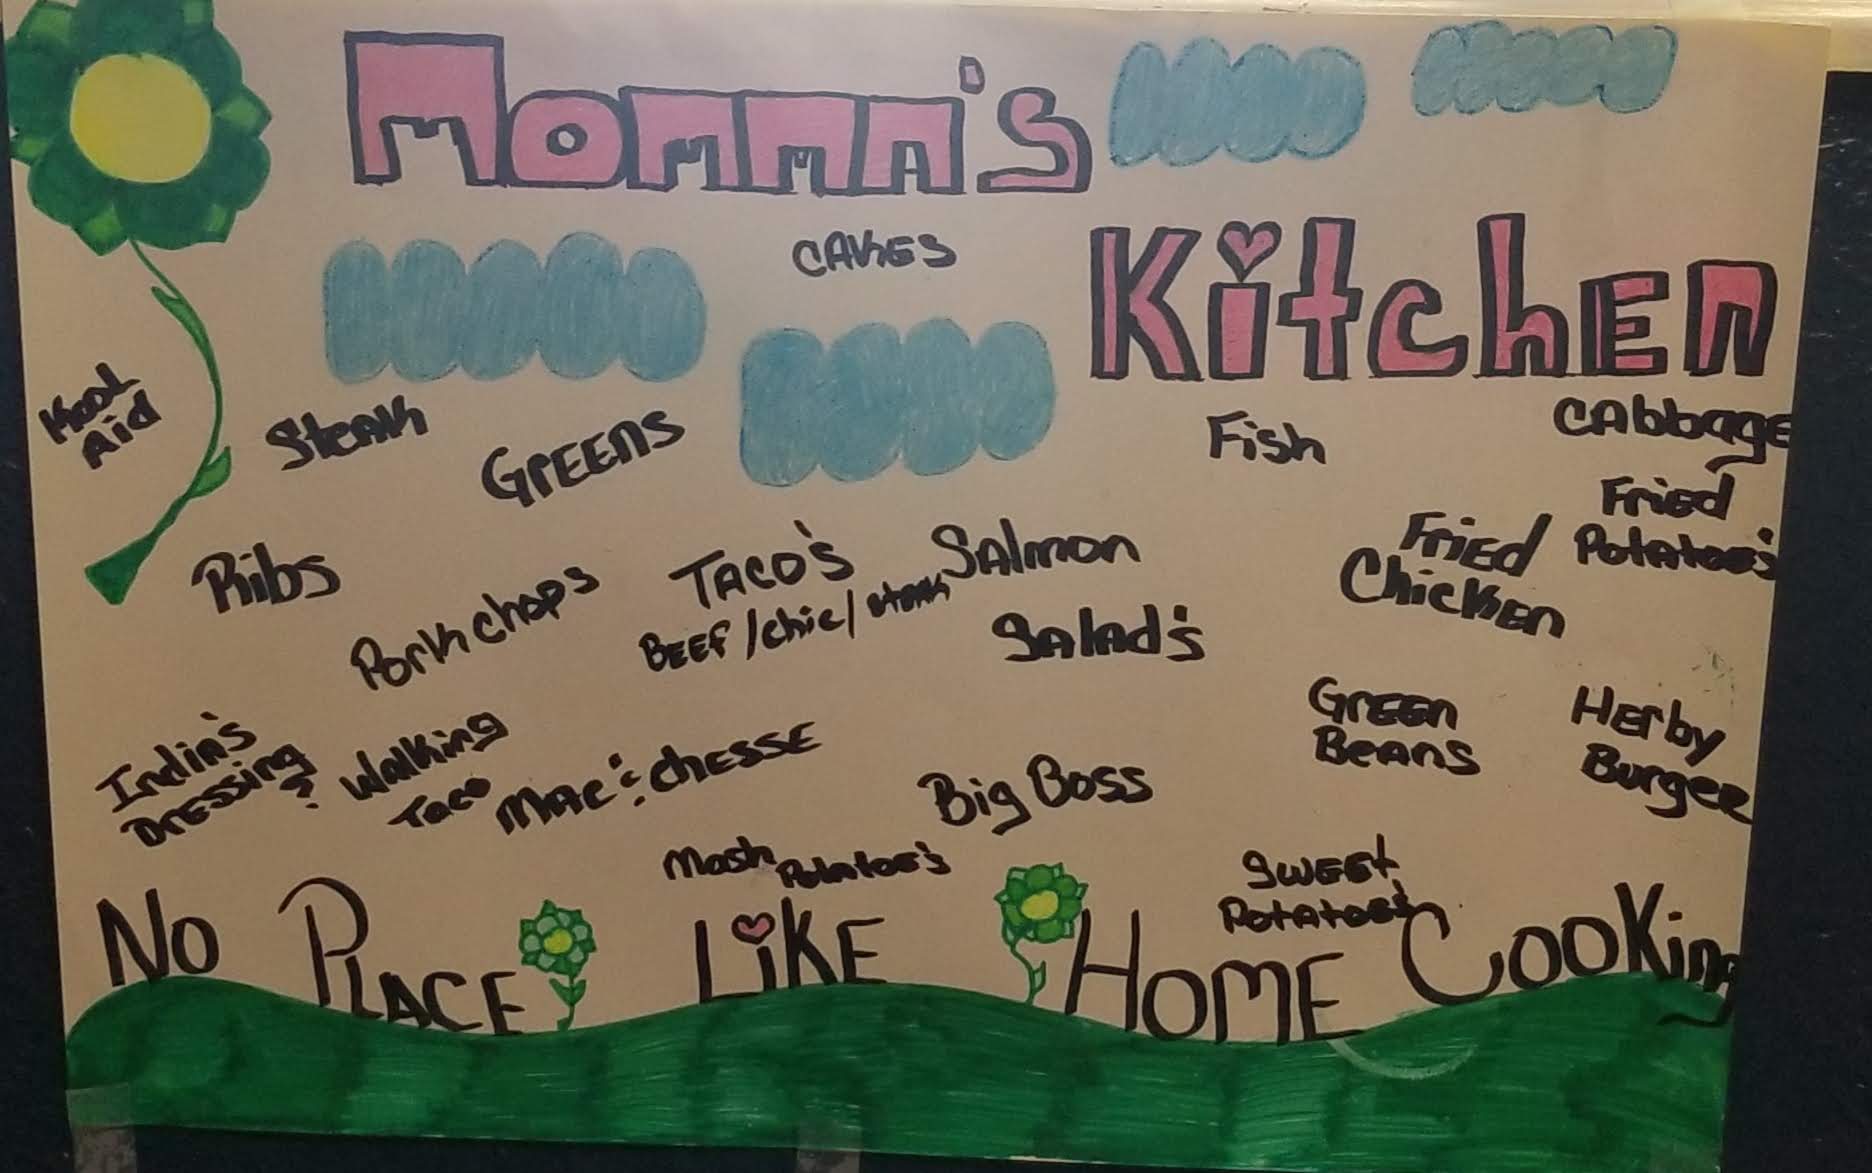 Momma's
Kitchen
CAKES
Kool
Aid
Steak
GREENS
Fish
CAbbage
Fried
Potatoe's
Fried
Chicken
Ribs
Pork chops
TACO'S
BEEF/chic/steak
SAlmon
SAlad's
Green
BEANS
HErby
Burger
India's
Dressing
Walking
Taco
MAC & CHESSE
Big Boss
Mash Potatoe's
SWEET
Potatoe's
No PLACE LiKE HOME COOKing